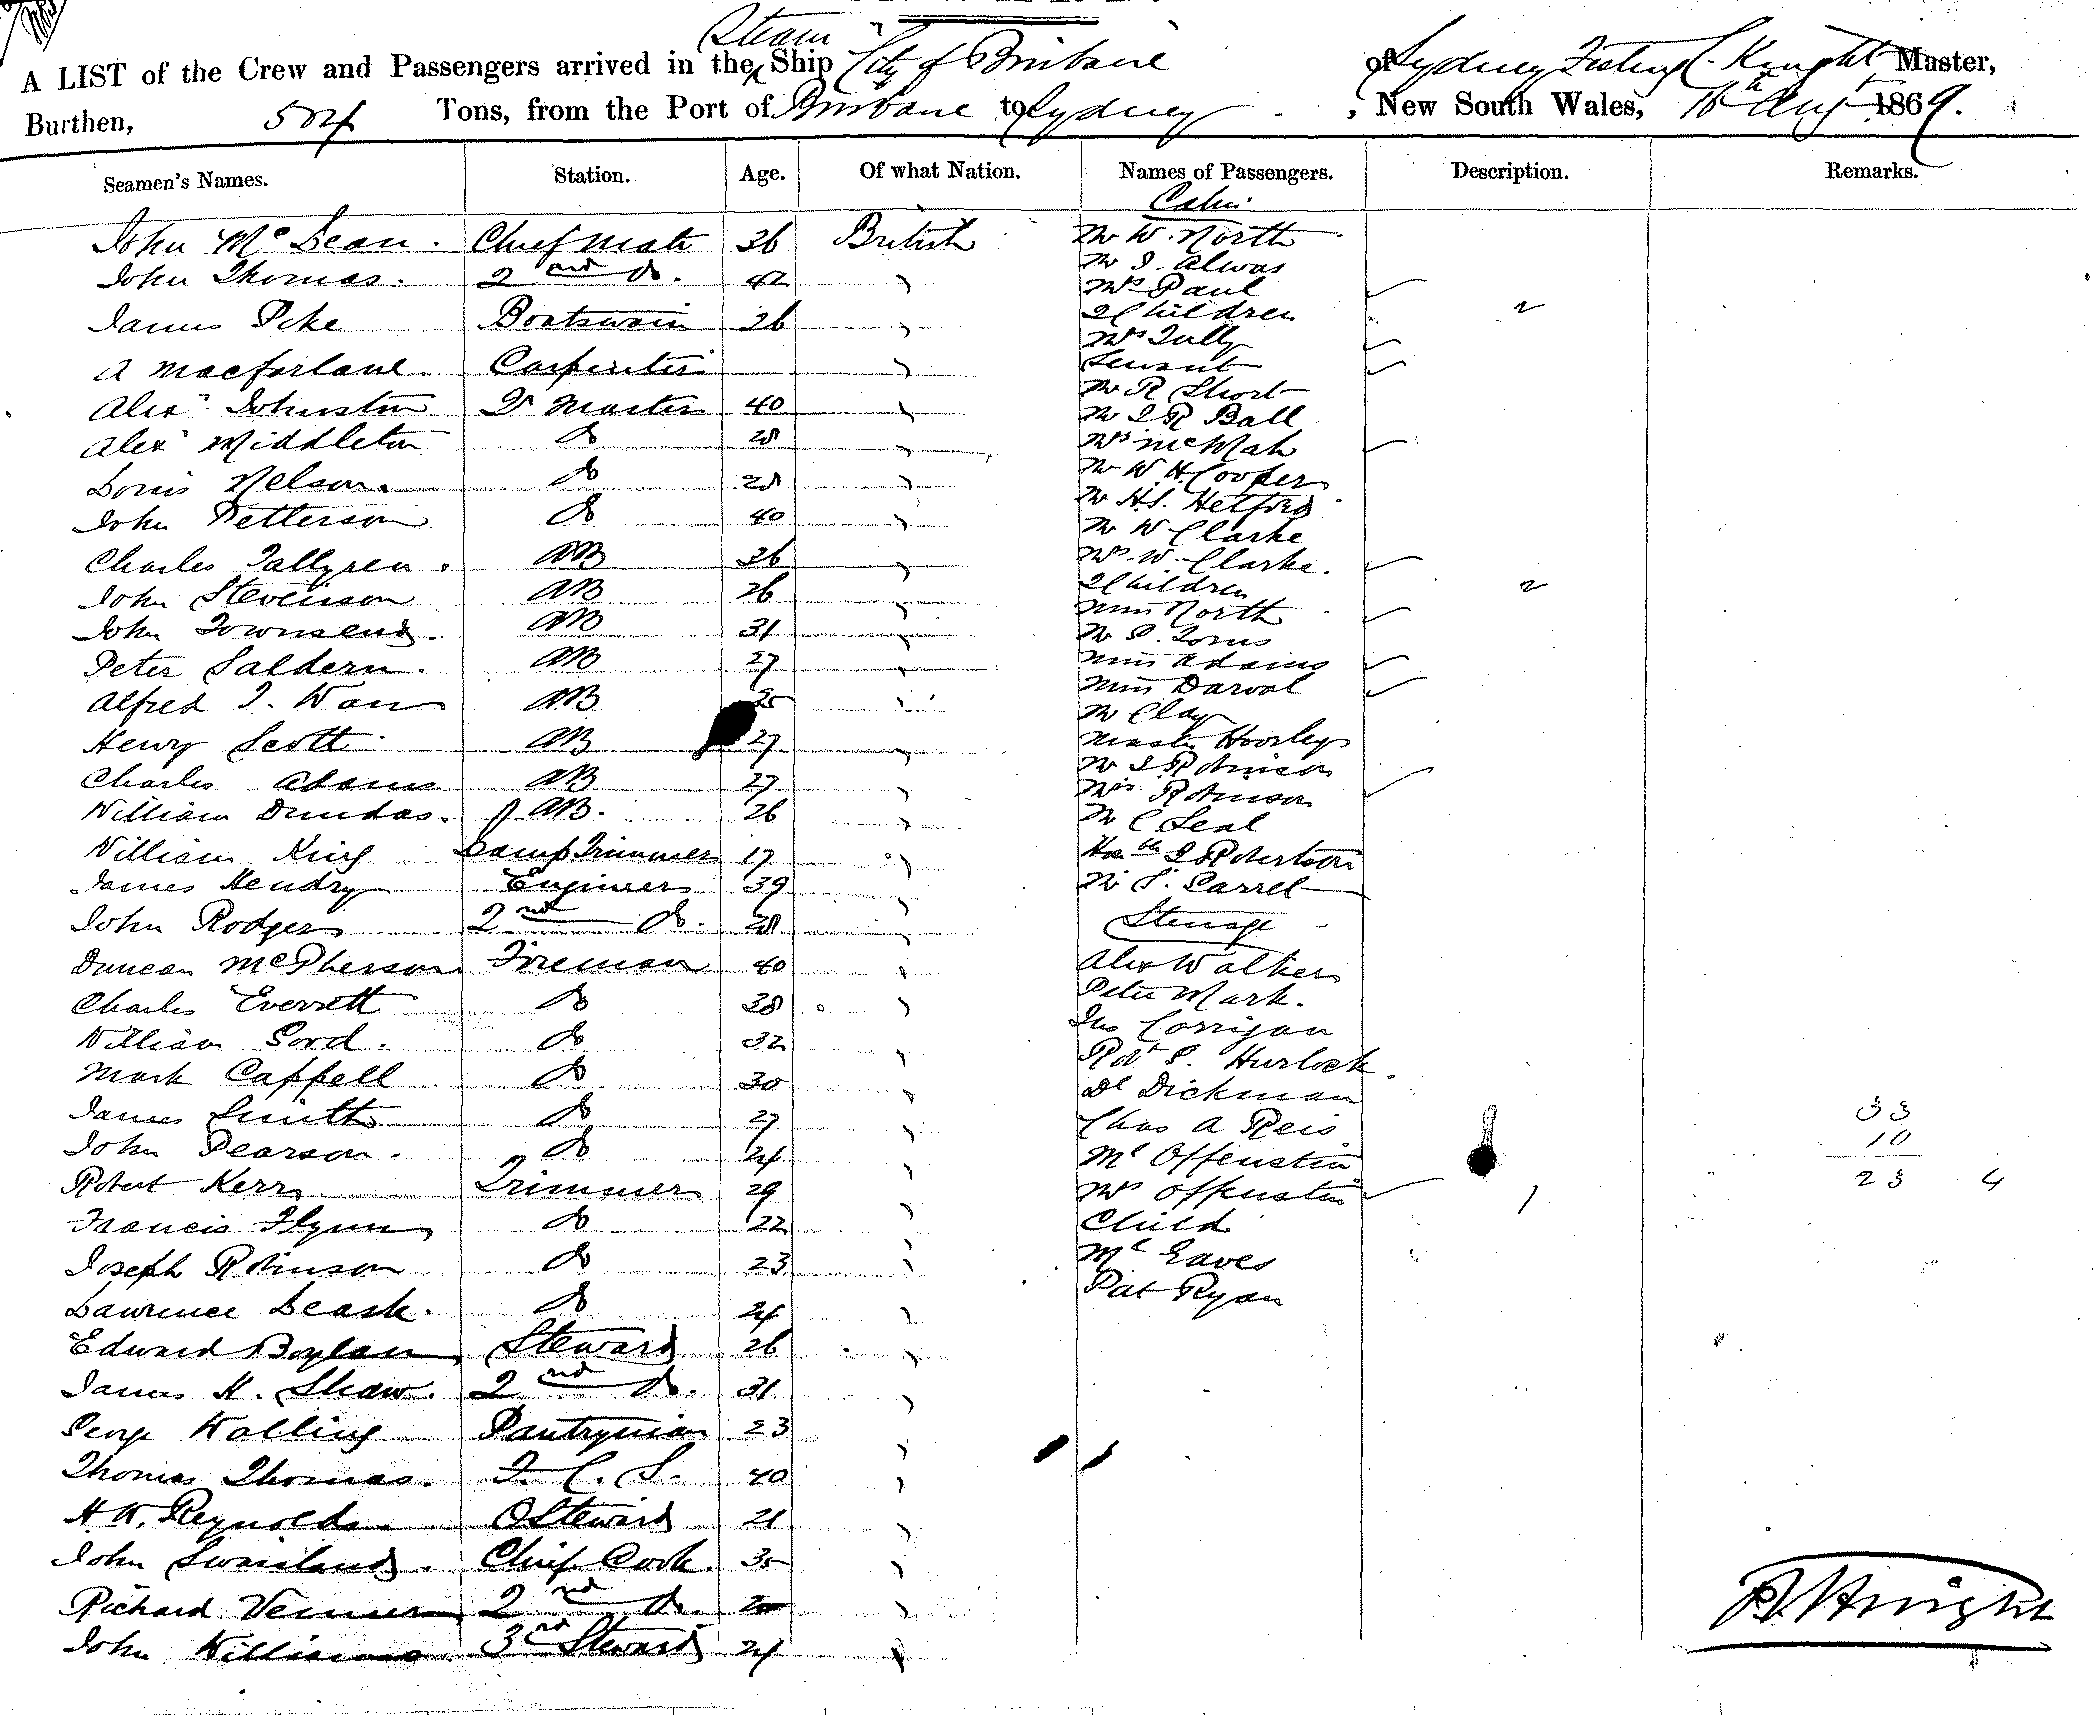 Steam
A LIST of the Crew and Passengers arrived in the Ship City of Brisbane of Sydney Knight Master,
Burthen, 504 Tons, from the Port of Brisbane to Sydney, New South Wales, 16th Aug 1869.
Seamen's Names. Station. Age. Of what Nation. Names of Passengers. Description. Remarks.
Cabin
John McLean. Chief Mate 36 British Mr W. North
John Thomas. 2nd do. 42 " Mr J. Alwas
Mrs Paul
James Pike Boatswain 26 " 2 Children 2
Mrs Tully
A Macfarlane. Carpenter " Servant
Mr R Short
Alexr Johnston Qr Master 40 " Mr J R Ball
Alexr Middleton do 28 " Mrs McMah
Mr W H Cooper
Louis Nelson. do 28 " Mr H.S. Hetford
John Petterson do 40 " Mr W Clarke
Charles Tallyren. AB 26 " Mrs W. Clarke.
John Stevenson AB 26 " 2 Children 2
Miss North
John Townsend. AB 31 "
Peter Saldern. AB 27 " Miss Adams
Alfred J. Wan AB 25 " Miss Darval
Mr Clay
Henry Scott AB 27 " Master
Mr J Robinson
Charles Adams AB 27 " Mrs Robinson
William Dundas. AB. 26 " Mr C Seal
William King Lamp Trimmer 17 " J Robertson
James Hendry Engineer 39 " Mr S. Carrel
John Rodgers 2nd do. 28 " Steerage
Duncan McPherson Fireman 40 " Alex Walker
Charles Everett do 38 " Peter Mark.
William Gord. do 32 " Jno Corrigan
Mark Cappell do 30 " Robt S. Hurlock.
Dl Dickman
James Smith do 27 " Chas A Reis 33
John Pearson. do 24 " Mr Offenstin 10
Robert Kerr Trimmer 29 " Mrs Offenstin 1 23 4
Francis Flynn do 22 " Child
Joseph Robinson do 23 " Mr Eaves
Lawrence Leask. do 24 " Pat Ryan
Edward Boylan Steward 26 "
James H. Shaw. 2nd do. 31 "
George Walling Pantryman 23 "
Thomas Thomas. F. C. S. 40 "
H. W. Reynolds. O Steward 21 "
John Swainland. Chief Cook. 35 "
Richard Venner 2nd do. "
John Williams 3rd Steward 24 "
Knight